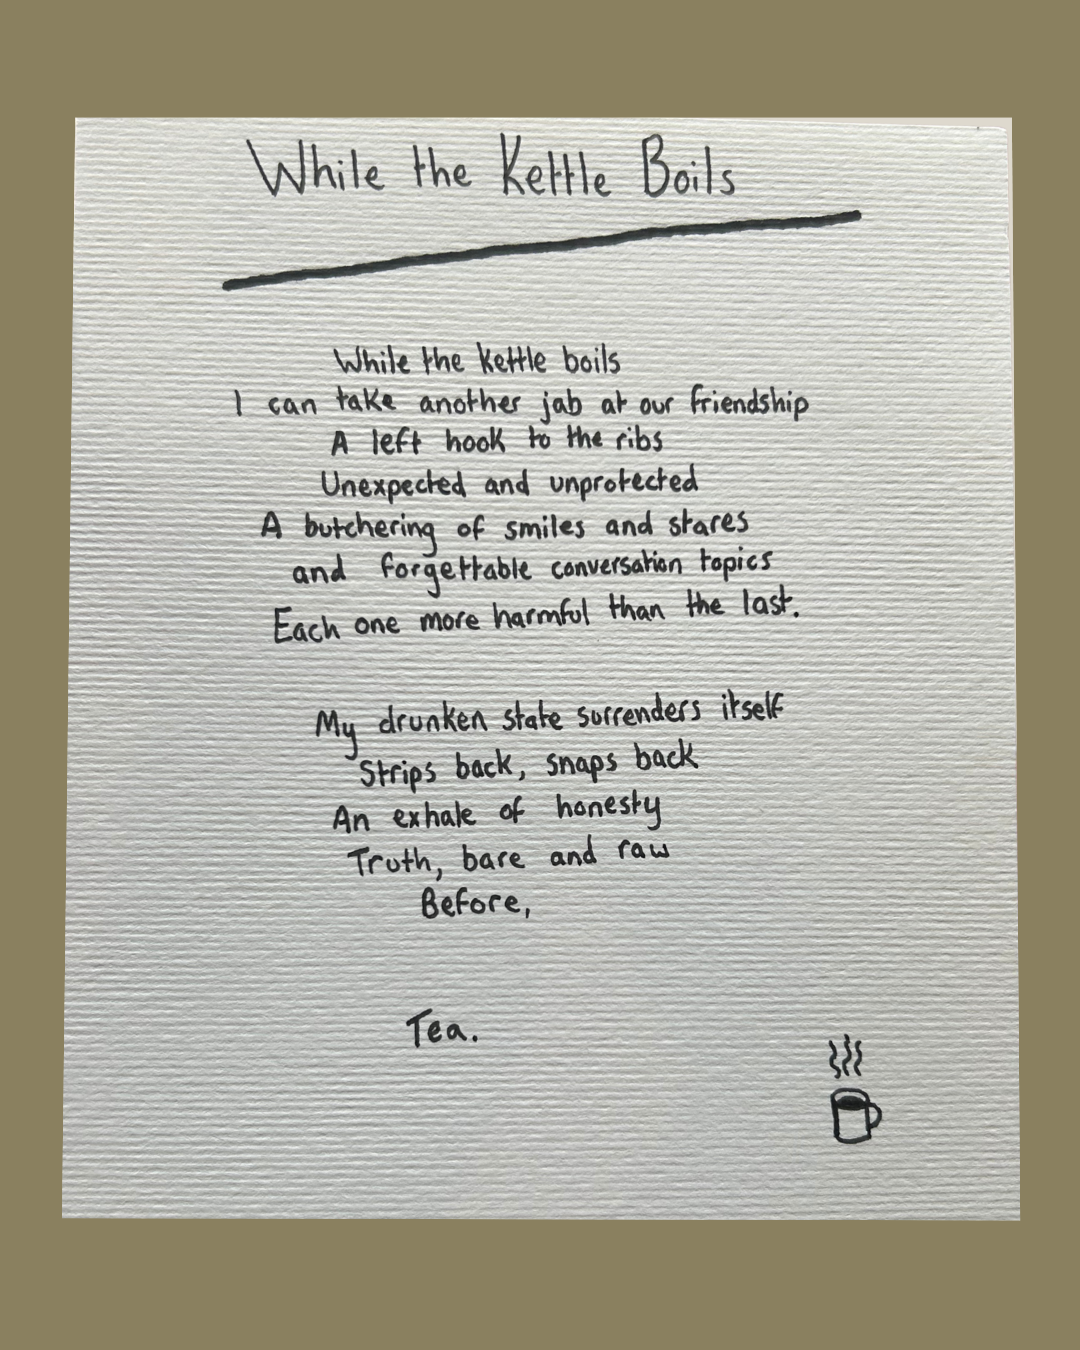 While the Kettle Boils
While the kettle boils
I can take another jab at our friendship
A left hook to the ribs
Unexpected and unprotected
A butchering of smiles and stares
and forgettable conversation topics
Each one more harmful than the last.
My drunken state surrenders itself
Strips back, snaps back
An exhale of honesty
Truth, bare and raw
Before,
Tea.